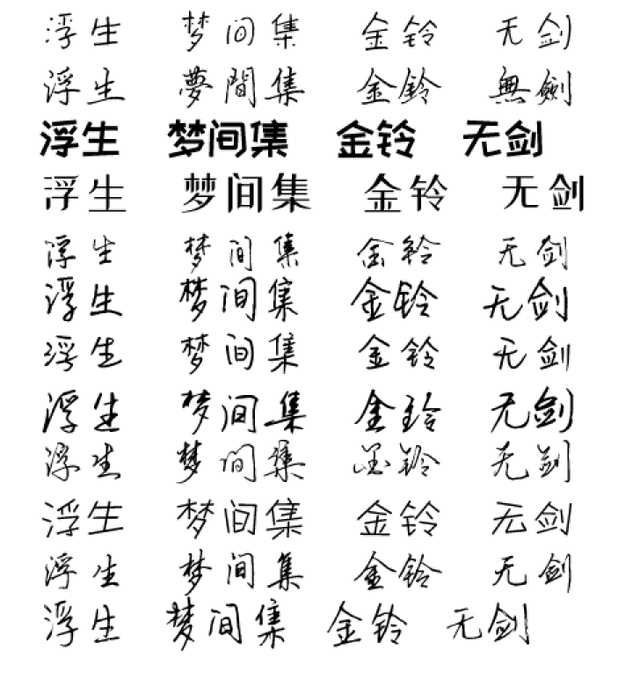 浮生 梦间集 金铃 无剑
浮生 夢間集 金鈴 無劍
浮生 梦间集 金铃 无剑
浮生 梦间集 金铃 无剑
浮生 梦间集 金铃 无剑
浮生 梦间集 金铃 无剑
浮生 梦间集 金铃 无剑
浮生 梦间集 金铃 无剑
浮生 梦间集 金铃 无剑
浮生 梦间集 金铃 无剑
浮生 梦间集 金铃 无剑
浮生 梦间集 金铃 无剑